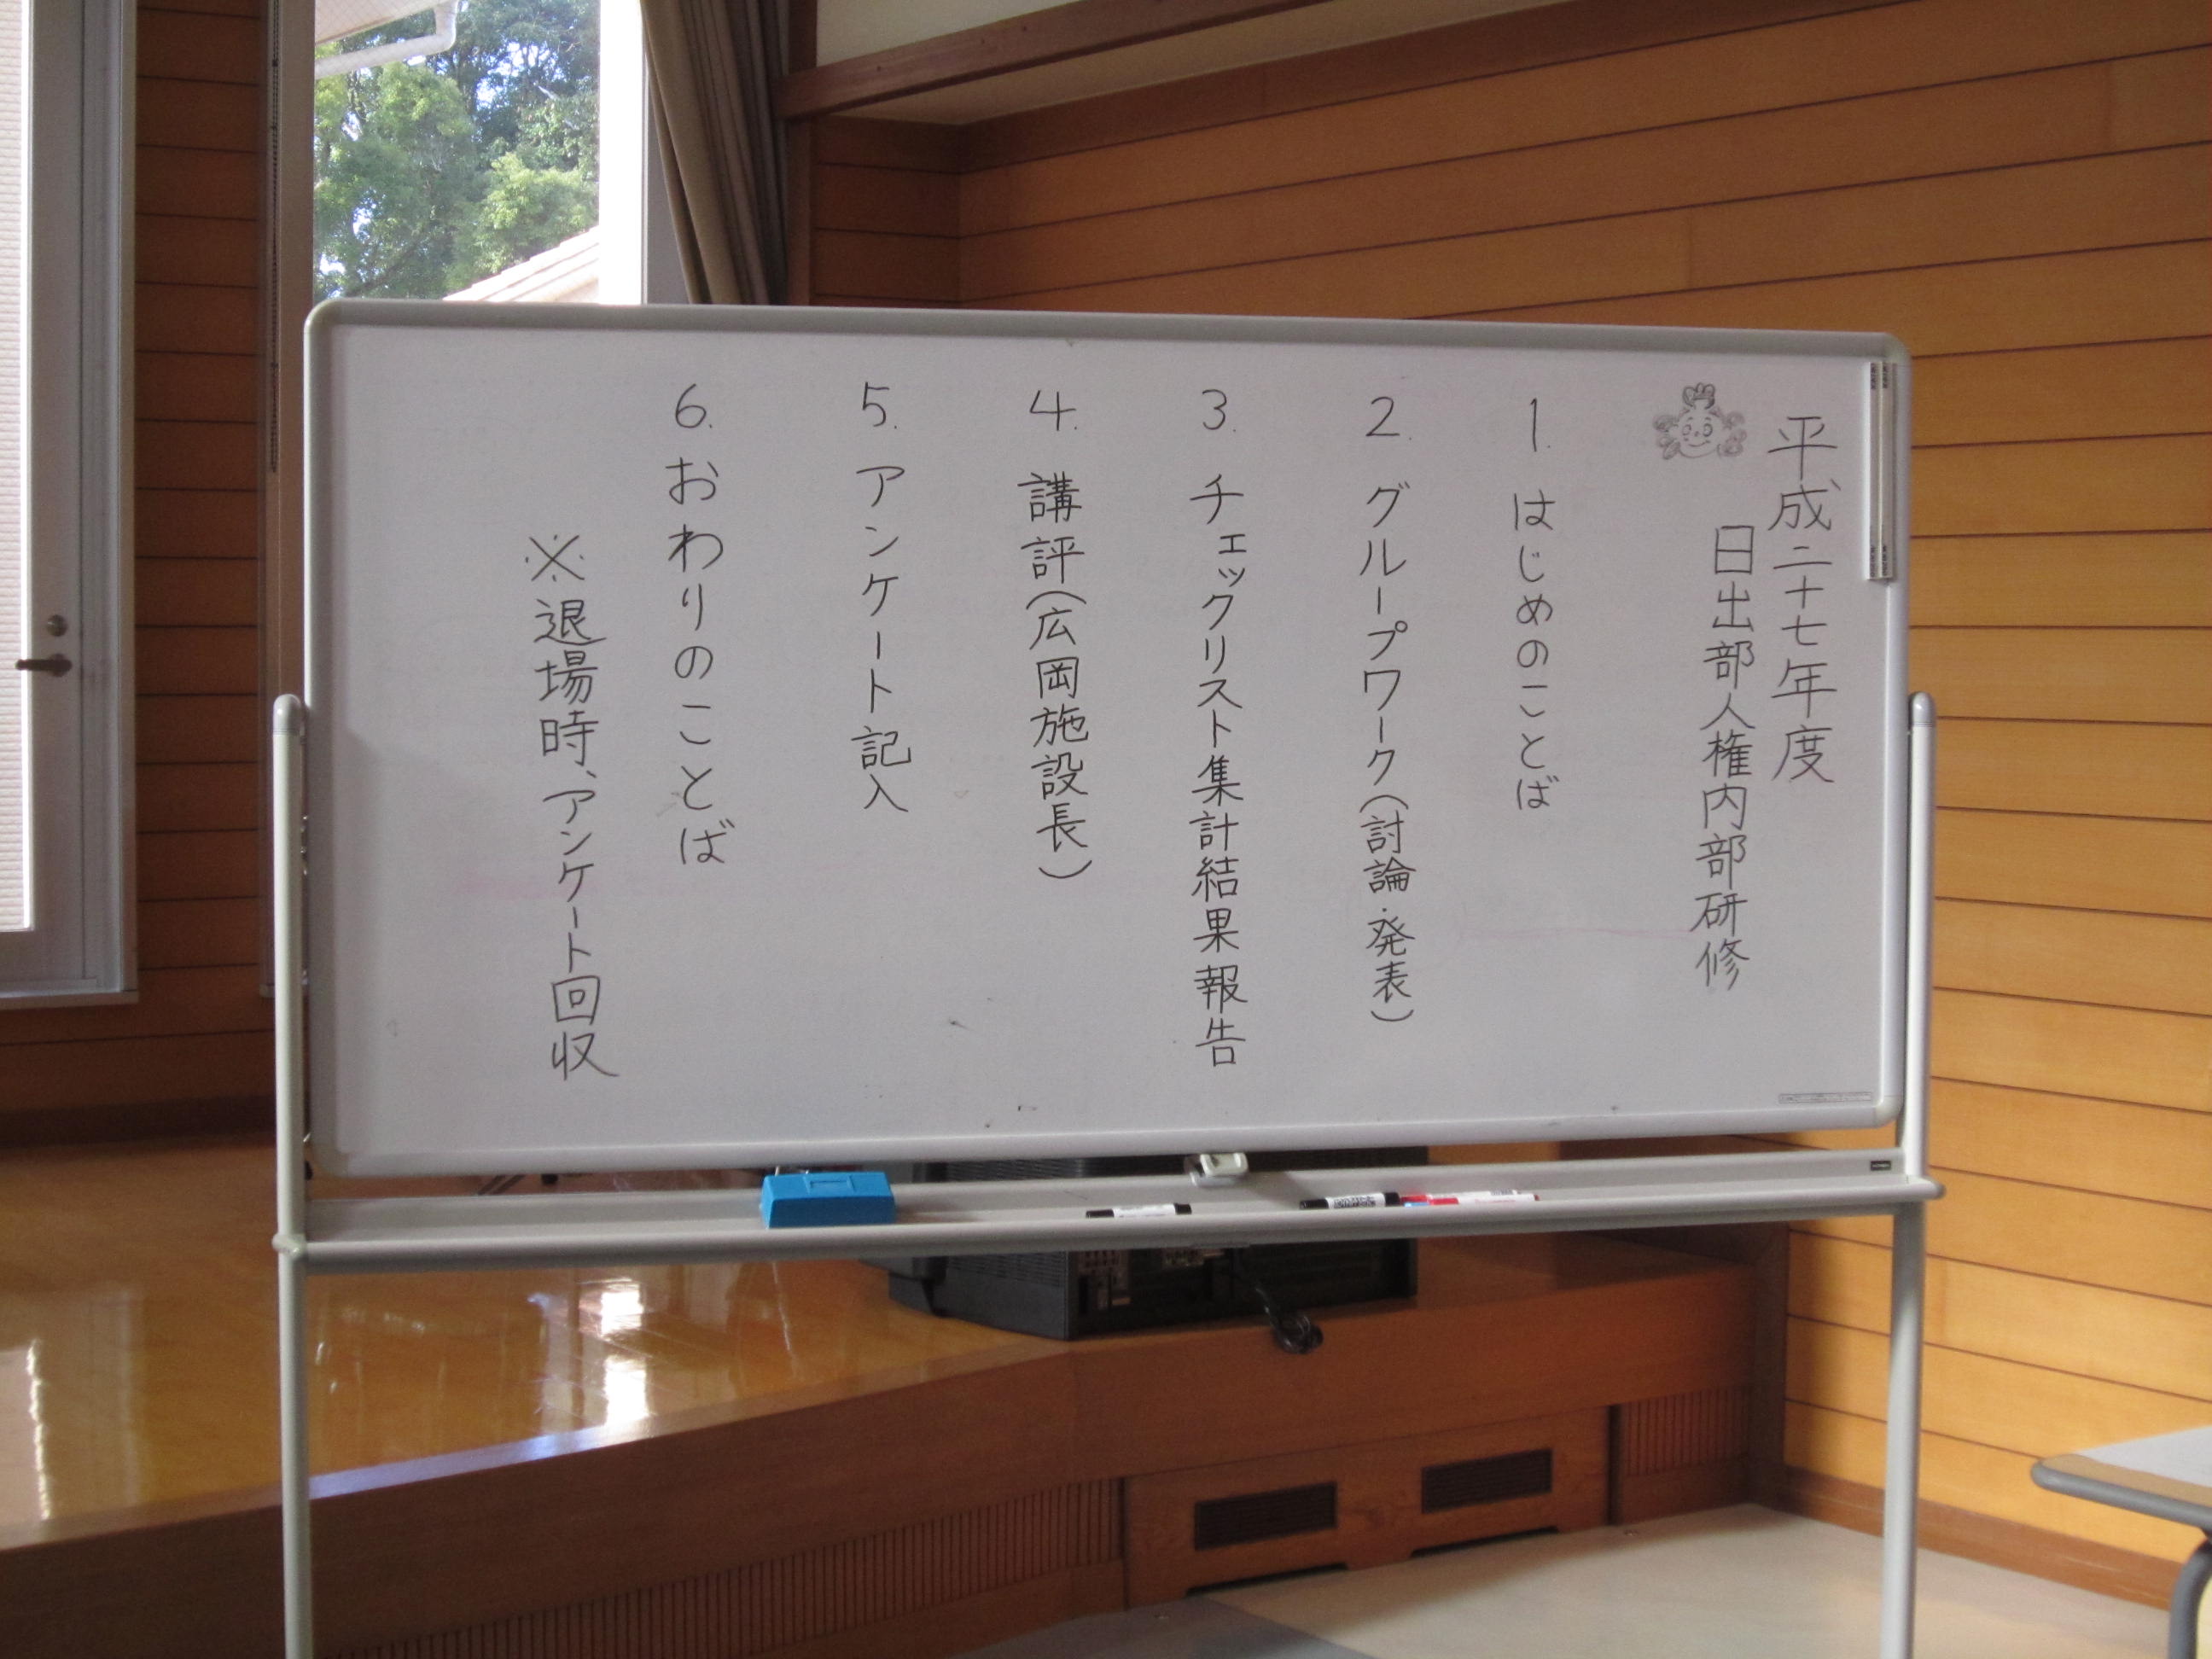 平成二十七年度
日出部人権内部研修
1. はじめのことば
2. グループワーク(討論・発表)
3. チェックリスト集計結果報告
4. 講評(広岡施設長)
5. アンケート記入
6. おわりのことば
※退場時、アンケート回収